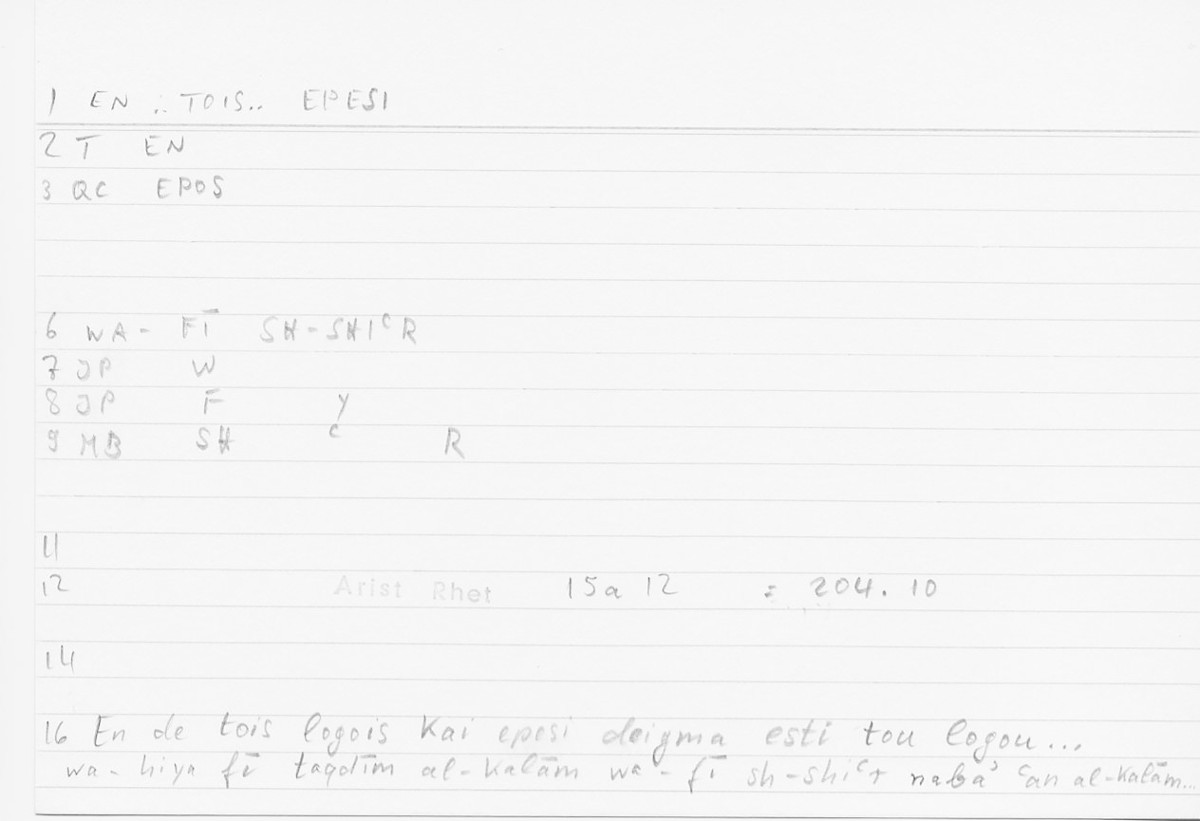 1 EN .:. TOIS.. EPESI
2 T EN
3 QC EPOS
6 WA- FĪ SH-SHIᶜR
7 JP W
8 JP F Y
9 MB SH ᶜ R
11
12 Arist Rhet 15a 12 = 204.10
14
16 En de tois logois kai epesi deigma esti tou logou...
wa-hiya fī taqdīm al-kalām wa-fī sh-shiᶜr nabaʾ ᶜan al-kalām...